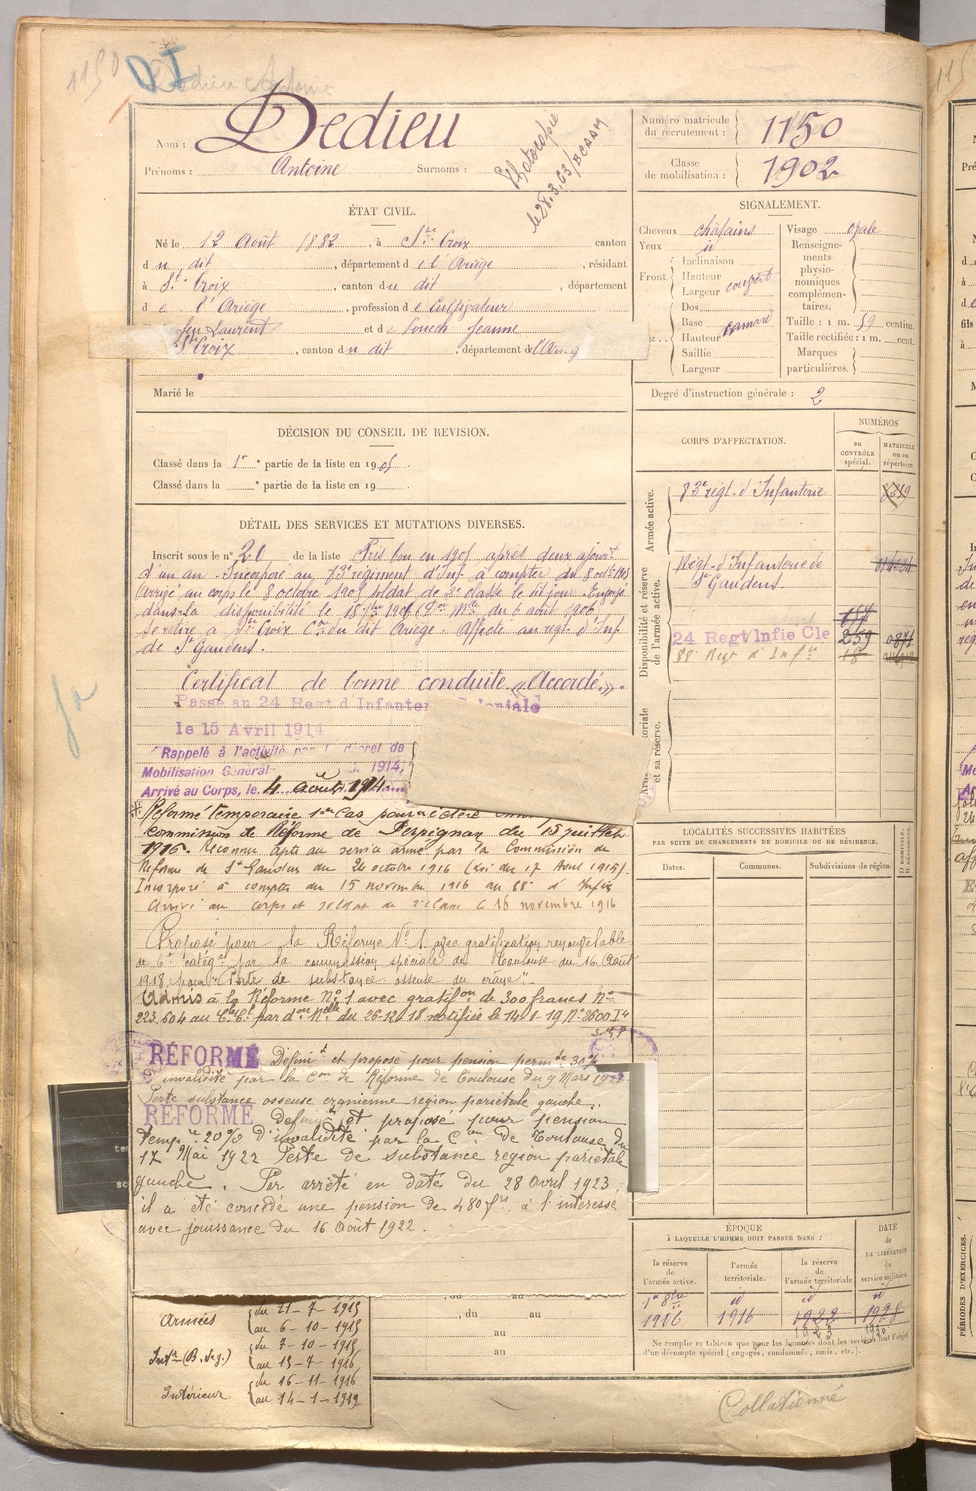 1150 DI Dedieu Antoine
Nom : Dedieu
Prénoms : Antoine Surnoms :
Photocopie
le 28.3.63/
Numéro matricule du recrutement : 1150
Classe de mobilisation : 1902
ÉTAT CIVIL.
Né le 12 Août 1882, à Ste Croix canton
d u dit, département de l'Ariège, résidant
à Ste Croix, canton du dit, département
de l'Ariège, profession de Cultivateur
feu Laurent et de Jeanne
Ste Croix, canton du dit, département
Marié le
SIGNALEMENT.
Cheveux châtains
Yeux id
Front
Inclinaison
Hauteur
Largeur couvert
Dos
Base camard
Hauteur
Saillie
Largeur
Visage ovale
Renseignements physionomiques complémentaires.
Taille : 1 m. 59 centim.
Taille rectifiée : 1 m. cent.
Marques particulières.
Degré d'instruction générale : 2
DÉCISION DU CONSEIL DE REVISION.
Classé dans la 1re partie de la liste en 1905.
Classé dans la partie de la liste en 19
CORPS D'AFFECTATION.
NUMÉROS
au CONTRÔLE spécial.
MATRICULE ou au répertoire.
Armée active.
83e régt. d'Infanterie
Disponibilité et réserve de l'armée active.
Régt. d'Infanterie de
St Gaudens
157
24 Regt Infie Cle 259 0871
88e Regt d'Infie 18
et sa réserve.
DÉTAIL DES SERVICES ET MUTATIONS DIVERSES.
Inscrit sous le n° 20 de la liste Pris bon en 1905 après deux ajournt
d'un an. Incorporé au 83e régiment d'Inf à compter du 8 octbre 1905
Arrivé au corps le 8 octobre 1905 soldat de 2e classe le dit jour. Envoyé
dans la disponibilité le 18 7bre 1906 (Don Mlle du 6 août 1906)
Se retire à Ste Croix Con du dit Ariège. Affecté au régt. d'Inf
de St Gaudens.
Certificat de bonne conduite « Accordé ».
Passé au 24 Regt d Infanter
le 15 Avril 1914
Rappelé à l'activité
Mobilisation Général 1914,
Arrivé au Corps, le 4 août 1914
Réformé temporaire 1er Cas pour
commission de Réforme de Perpignan du 15 juillet
1916. Reconnu apte au service armé par la Commission de
Réforme de St Gaudens du 26 octobre 1916 (Loi du 17 Août 1915).
Incorporé à compter du 15 novembre 1916 au 88e d'Infie
Arrivé au corps et soldat de 2e classe le 16 novembre 1916
Proposé pour la Réforme N° 1 avec gratification renouvelable
de 6e catégie par la commission spéciale de Toulouse du 16 Août
1918 pour "Perte de substance osseuse du crâne".
Admis à la Réforme N° 1 avec gratifon de 300 francs N°
223.604 au par don Nelle du 26-12-18 notifiée le 14-1-19 N° 2600
RÉFORMÉ Définit et proposé pour pension permte 30%
d'invalidité par la Con de Réforme de Toulouse du 9 Mars
Perte substance osseuse cranienne region parietale gauche.
RÉFORMÉ et proposé pour pension
tempre 20% d'invalidité par la Con de Toulouse du
17 Mai 1922 Perte de substance region parietale
gauche. Par arrêté en date du 28 Avril 1923
il a été concédé une pension de 480 frs à l'intéressé
avec jouissance du 16 Août 1922.
Armées {du 21-7-1915
{au 6-10-1915
Intr (B. de g.) {du 7-10-1915
{au 15-7-1916
Intérieur {du 16-11-1916
{au 14-1-1919
, du au
au
au
LOCALITÉS SUCCESSIVES HABITÉES
PAR SUITE DE CHANGEMENTS DE DOMICILE OU DE RÉSIDENCE.
Dates. Communes. Subdivisions de région.
ÉPOQUE
À LAQUELLE L'HOMME DOIT PASSER DANS :
DATE de LA LIBÉRATION du service militaire.
la réserve de l'armée active. l'armée territoriale. la réserve de l'armée territoriale
1er 8bre id id id
1906 1916 1922 1928
1923 1930
Ne remplir ce tableau que pour les hommes dont les services font l'objet
d'un décompte spécial (engagés, condamnés, omis, etc.).
Collationné
PÉRIODES D'EXERCICES.